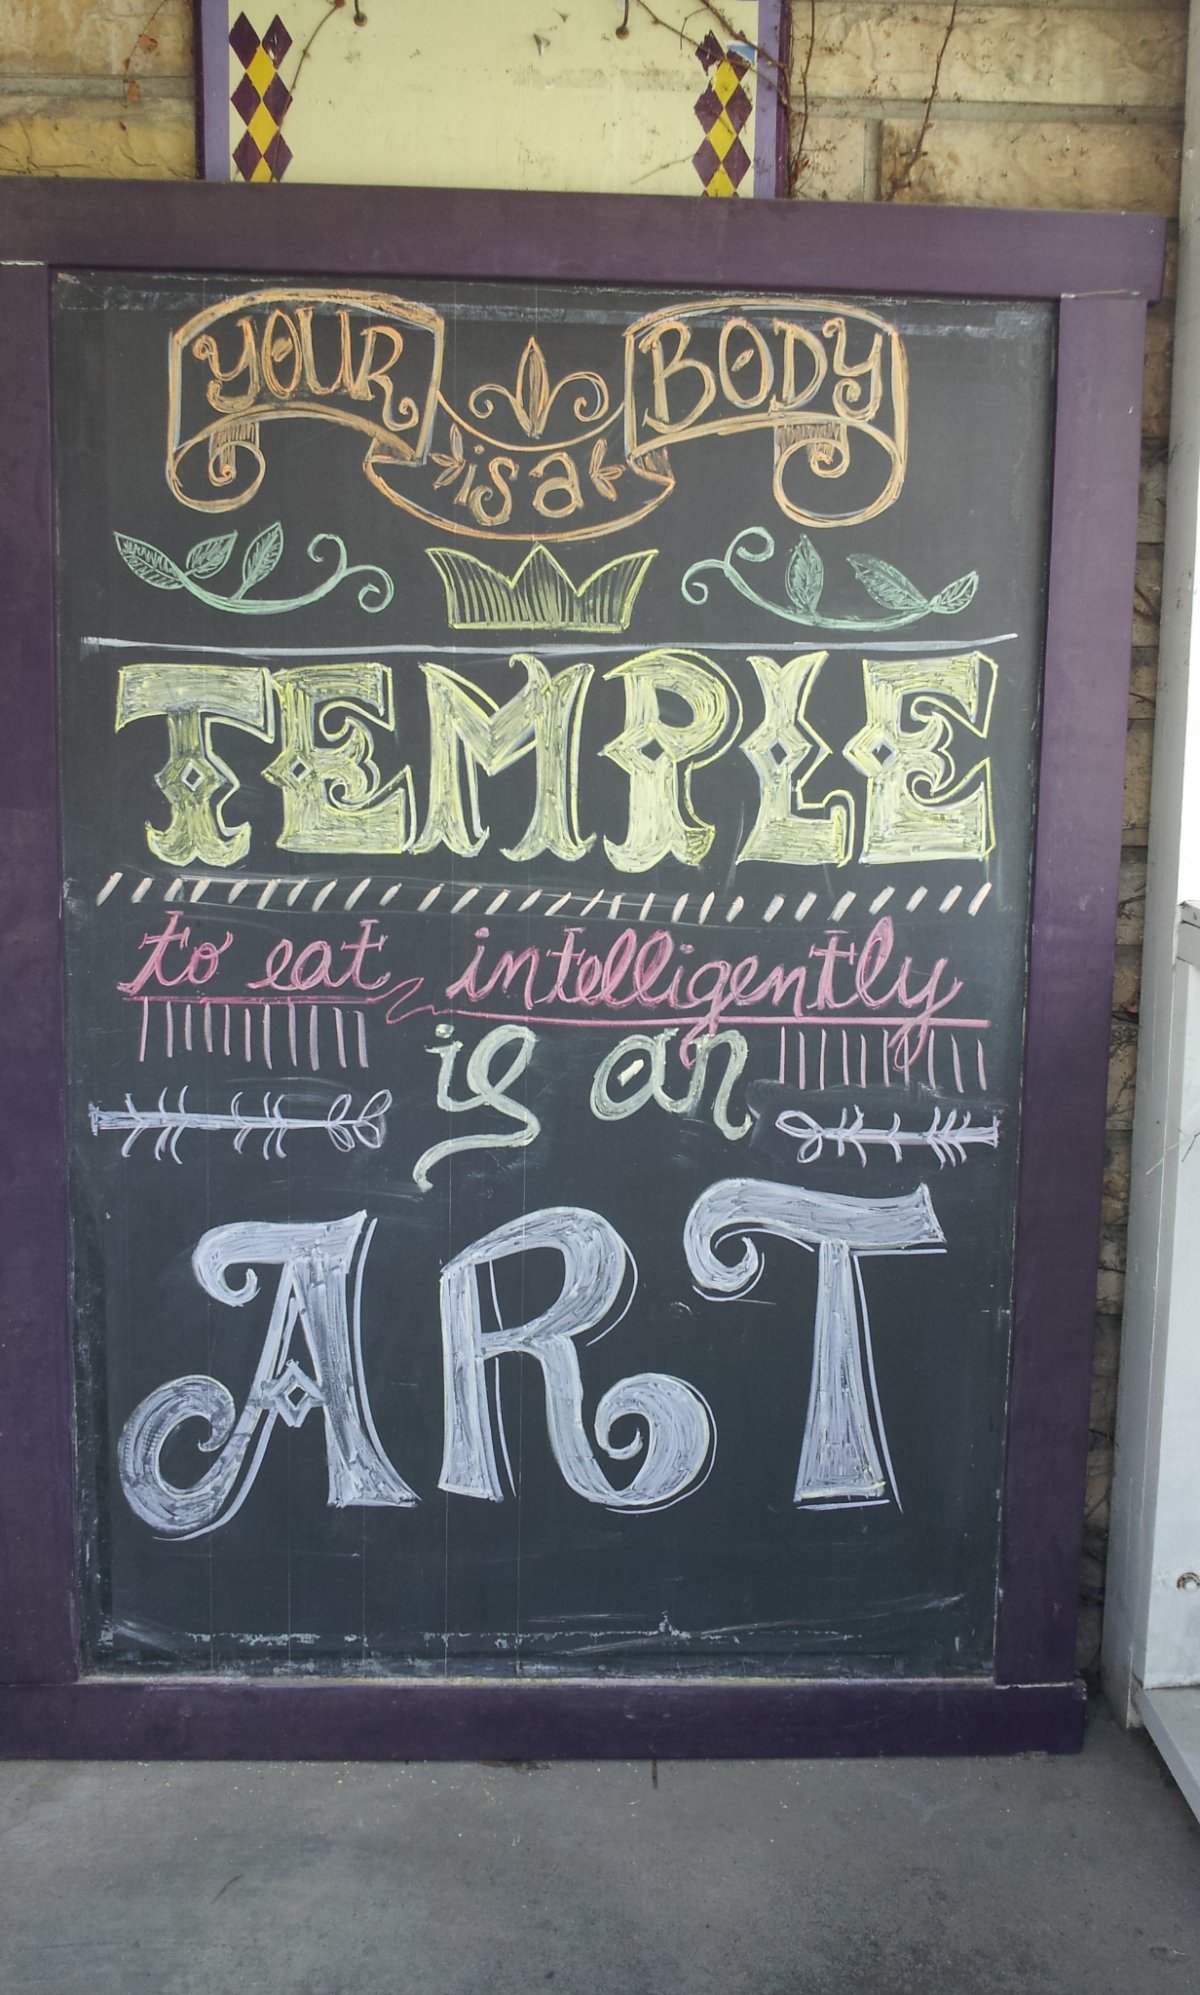 YOUR BODY
is a
TEMPLE
to eat intelligently
is an
ART